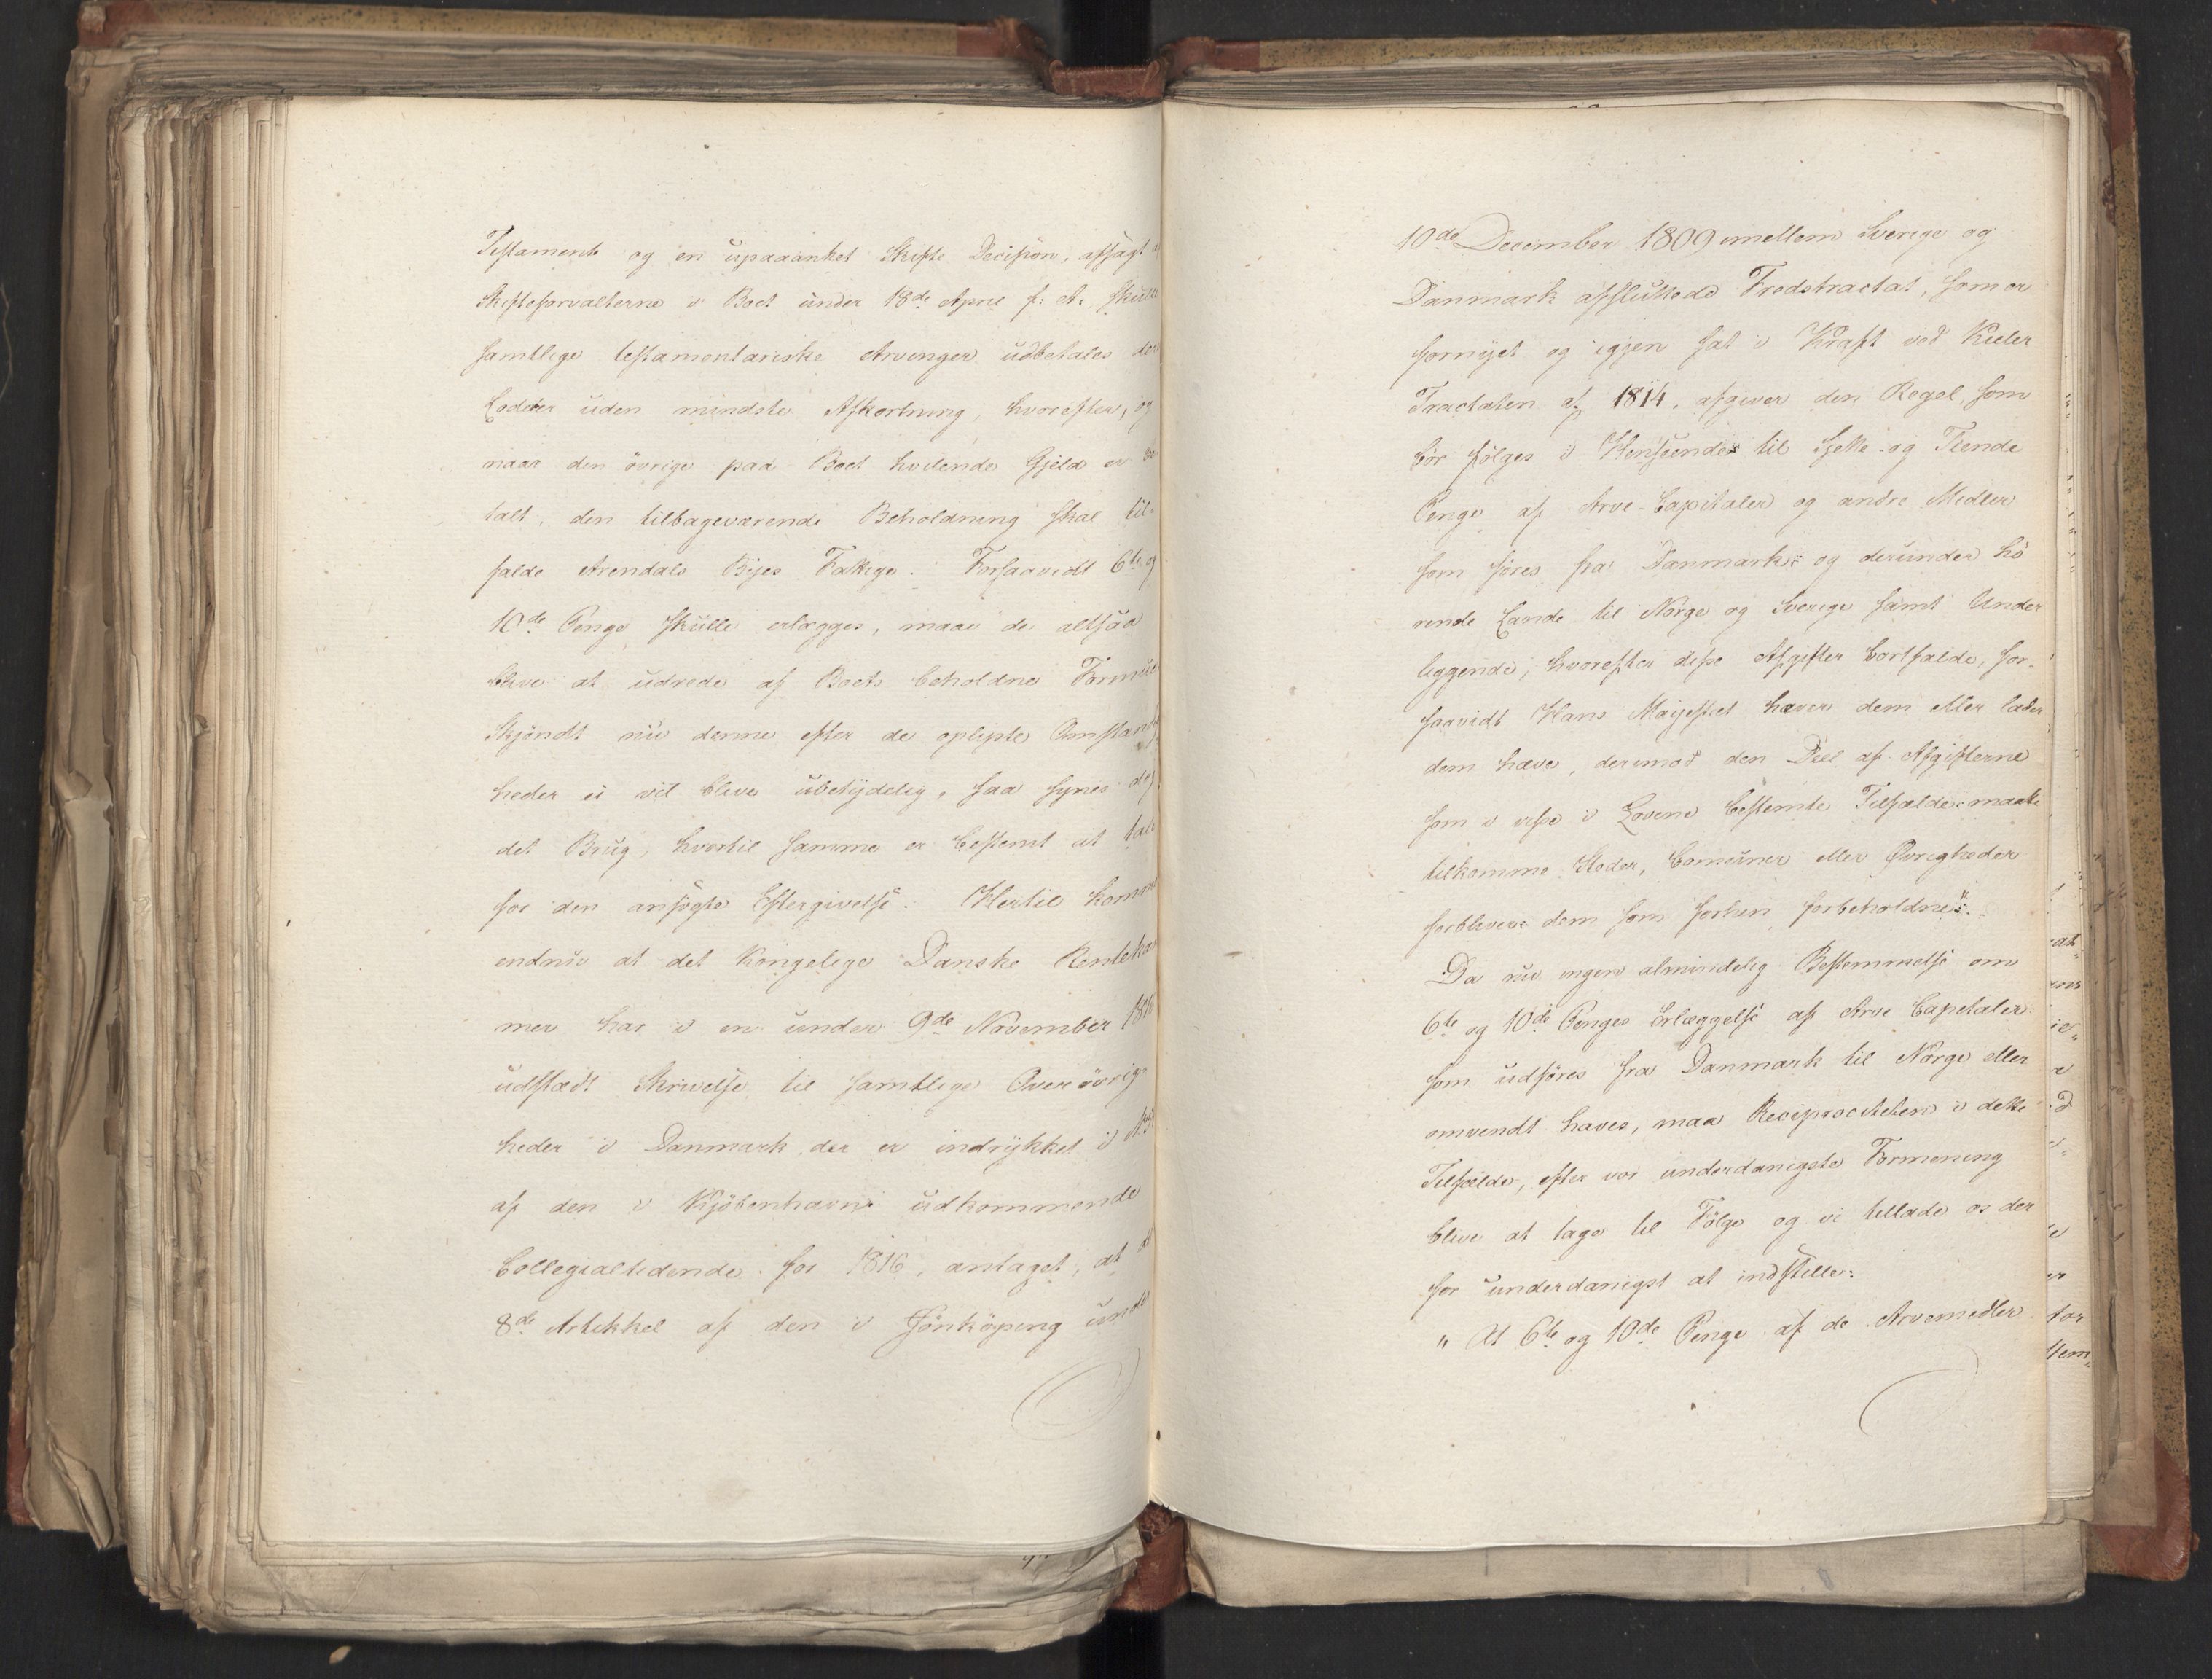 Testament og en upaaanket Skifte Decision, afsagt
Skifteforvalterne i Boet under 18de April f: A: skulle
samtlige testamentariske Arvinger udbetales
Lodder uden mindste Afkortning, hvorefter, og
naar den övrige paa Boet hvilende Gjeld er
talt, den tilbageværende Beholdning skal til-
falde Arendals Byes Fattige. Forsaavidt 6te og
10de Penge skulle erlægges, maae de altsaa
blive at udrede af Boets beholdne Formue
Skjöndt nu denne efter de oplyste Omstænd
heder ei vil blive ubetydelig, saa synes dog
det Brug, hvortil samme er bestemt at tale
for den ansögte Eftergivelse. Hertil kommer
endnu at det Kongelige Danske Rentekam
mer har i en under 9de November 1816
udstædt Skrivelse til samtlige Överövrig
heder i Danmark, der er indrykket i
af den i Kjöbenhavn udkommende
Collegialtidende for 1816, antaget, at
8de Artikkel af den i Jönköping under
10de December 1809 imellem Sverige og
Danmark afsluttede Fredstractat, som er
fornyet og igjen sat i Kraft ved Kieler
Tractaten af 1814, afgiver den Regel, som
bör fölges i Henseende til Sjette og Tiende
Penge af Arve-Capitaler og andre Midler
som föres fra Danmark og derunder hö
rende Lande til Norge og Sverige samt Under
liggende, hvorefter disse Afgifter bortfalde, for-
saavidt Hans Majestæt hæver dem eller lader
dem hæve, derimod den Deel af Afgifterne
som i visse i Lovene bestemte Tilfælde maatte
tilkomme Stæder, Comuner eller Övrigheder
forbliver dem som forhen forbeholdne".
Da nu ingen almindelig Bestemmelse om
6te og 10de Penges Erlæggelse af Arve Capitaler
som udföres fra Danmark til Norge eller
omvendt haves, maa Reciprociteten i dette
Tilfælde, efter vor underdanigste Formening
blive at tage til Fölge og vi tillade os der
for underdanigst at indstille:
" At 6te og 10de Penge af de Arvemidler